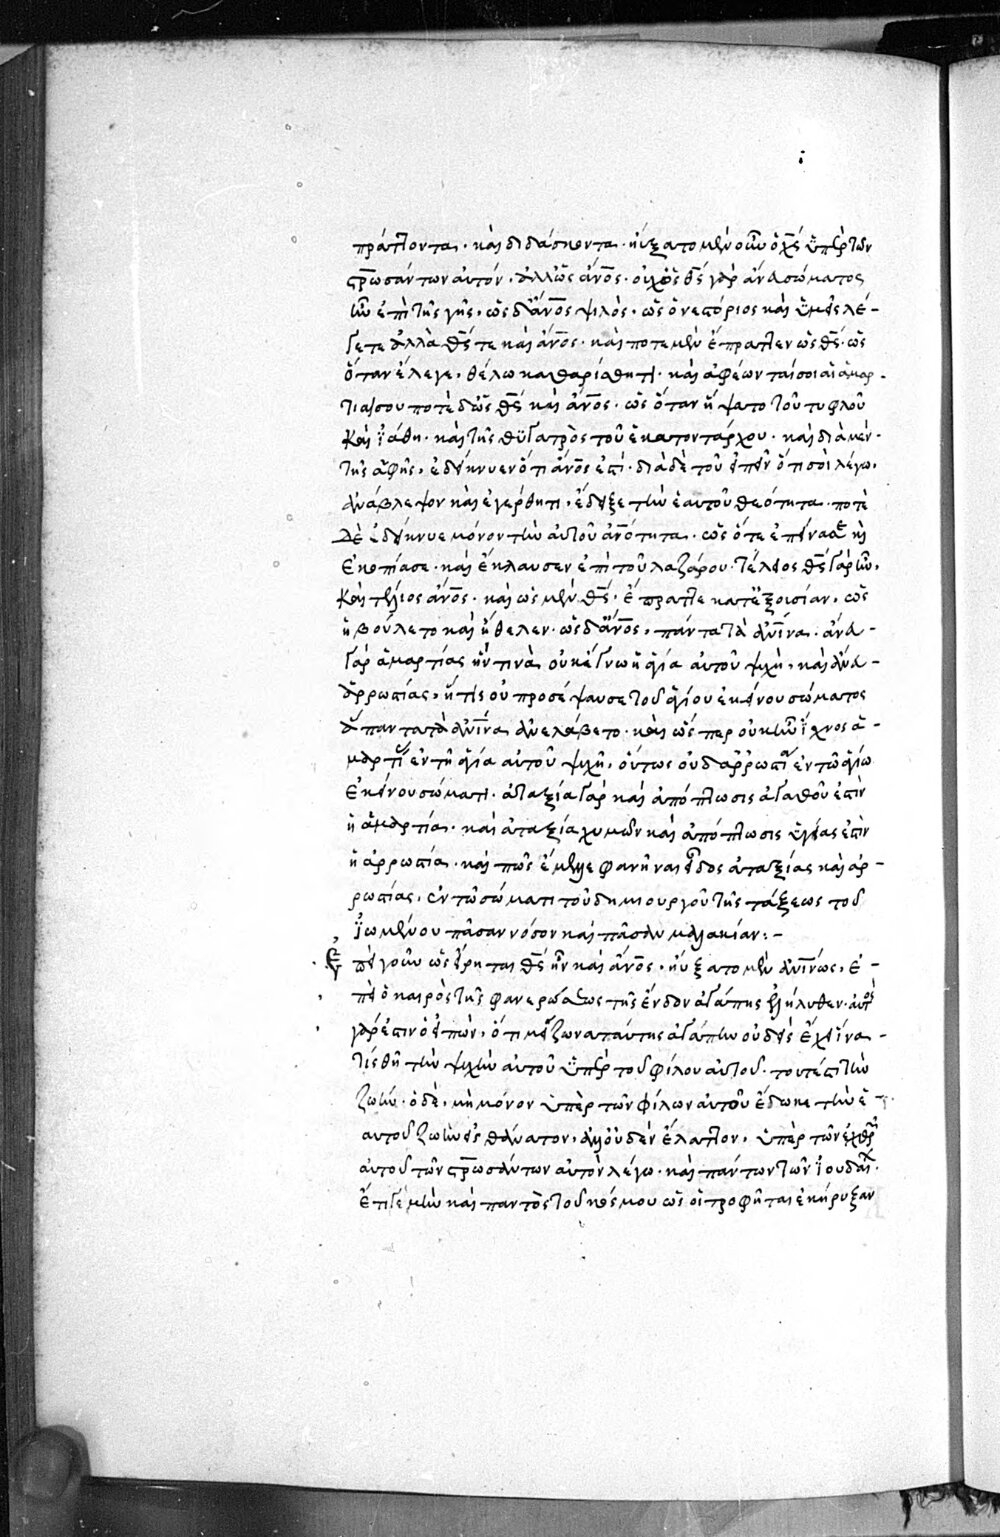 πράττοντα· καὶ διδάσκοντα· ηὔξατο μὲν οὖν ὁ χς ὑπὲρ τῶν
στρωσάντων αὐτόν· ἀλλ' ὡς ἄνος· οὐχ ὡς θς γὰρ ἄνευ σώματος
ἦν ἐπὶ τῆς γῆς, ὡς δ' ἄνος ψιλὸς, ὡς ὁ νεστόριος καὶ ὑμεῖς λέ-
γετε ἀλλὰ θς τε καὶ ἄνος· καὶ ποτὲ μὲν ἔπραττεν ὡς θς· ὡς
ὅταν ἔλεγε, θέλω καθαρίσθητι· καὶ ἀφέωνταί σοι αἱ ἁμαρ-
τίαι σου ποτὲ δ' ὡς θς καὶ ἄνος· ὡς ὅταν ἥψατο τοῦ τυφλοῦ
καὶ ἰάθη· καὶ τῆς θυγατρὸς τοῦ ἑκατοντάρχου· καὶ διὰ μὲν
τῆς ἁφῆς, ἐδείκνυεν ὅτι ἄνος ἐστί· διὰ δὲ τοῦ εἰπεῖν ὅτι σοὶ λέγω,
ἀνάβλεψον καὶ ἐγέρθητι, ἔδειξε τὴν ἑαυτοῦ θεότητα· ποτὲ
δὲ ἐδείκνυε μόνον τὴν αὐτοῦ ἀνότητα· ὡς ὅτε ἐπείνασε καὶ
ἐκοπίασε· καὶ ἔκλαυσεν ἐπὶ τοῦ λαζάρου· τέλειος θς γὰρ ὢν,
καὶ τέλειος ἄνος· καὶ ὡς μὲν θς, ἔπραττε κατ' ἐξουσίαν, ὡς
ἠβούλετο καὶ ἤθελεν· ὡς δ' ἄνος, πάντα τὰ ἀνινα· ἄνευ
γὰρ ἁμαρτίας ἥντινα οὐκ ἔγνω ἡ ἁγία αὐτοῦ ψυχὴ, καὶ ἄνευ
ἀρρωστίας, ἥτις οὐ προσέψαυσε τοῦ ἁγίου ἐκείνου σώματος
ἅπαντα τὰ ἀνινα ἀνελάβετο· καὶ ὥσπερ οὐκ ἦν ἴχνος ἁ-
μαρτίας ἐν τῇ ἁγία αὐτοῦ ψυχῇ, οὕτως οὐδ' ἀῤῥωστίας ἐν τῶ ἁγίω
ἐκείνου σώματι· ἀταξία γὰρ καὶ ἀπόπτωσις ἀγαθοῦ ἐστὶν
ἡ ἁμαρτία· καὶ ἀταξία χυμῶν καὶ ἀπόπτωσις ὑγείας ἐστὶν
ἡ ἀρρωστία· καὶ πῶς ἔμελλε φανῆναι εἶδος ἀταξίας καὶ ἀρ-
ρωστίας, ἐν τῶ σώματι τοῦ δημιουργοῦ τῆς τάξεως τοῦ
ἰωμένου πᾶσαν νόσον καὶ πᾶσαν μαλακίαν:-
Ἐπεὶ γοῦν ὡς εἴρηται θς ἦν καὶ ἄνος, ηὔξατο μὲν ἀνινως, ἐ-
πεὶ ὁ καιρὸς τῆς φανερώσεως τῆς ἔνδον ἀγάπης ἐξήλυθεν· αὐτὸς
γάρ ἐστιν ὁ εἰπὼν, ὅτι μείζονα ταύτης ἀγάπην οὐδεὶς ἔχει ἵνα
τις θῇ τὴν ψυχὴν αὐτοῦ ὑπὲρ τοῦ φίλου αὐτοῦ· τουτέστι τὴν
ζωήν· ὁ δὲ, μὴ μόνον ὑπὲρ τῶν φίλων αὐτοῦ ἔδωκε τὴν ἑ-
αυτοῦ ζωὴν εἰς θάνατον, ἀλλ' οὐδὲν ἔλαττον, ὑπὲρ τῶν ἐχθρῶν
αὐτοῦ τῶν στρωσάντων αὐτὸν λέγω· καὶ πάντων τῶν ἰουδαίων·
ἔτι γε μὴν καὶ παντὸς τοῦ κόσμου ὡς οἱ προφῆται ἐκήρυξαν